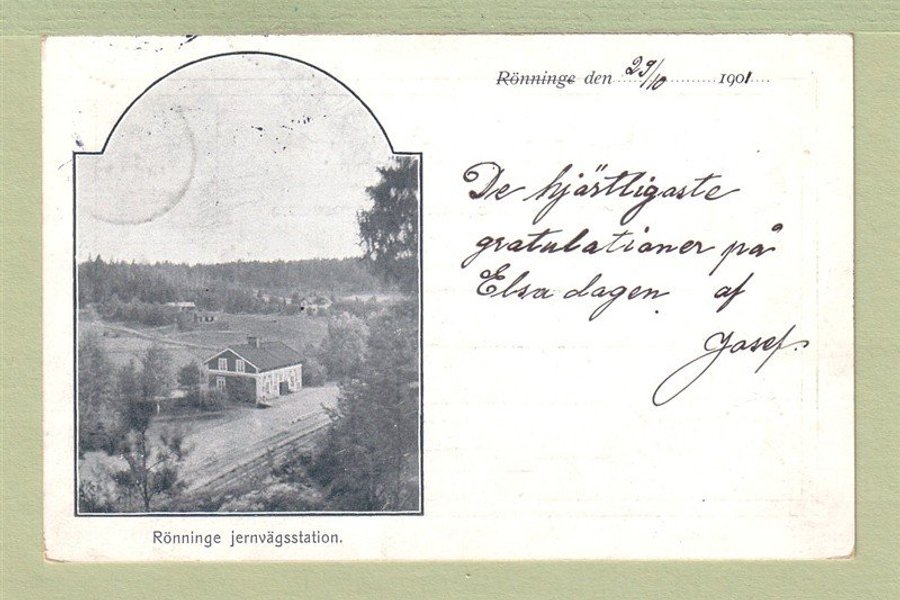 Rönninge den 29/10 1901
De hjärtligaste
gratulationer på
Elsa dagen af
Josef.
Rönninge jernvägsstation.